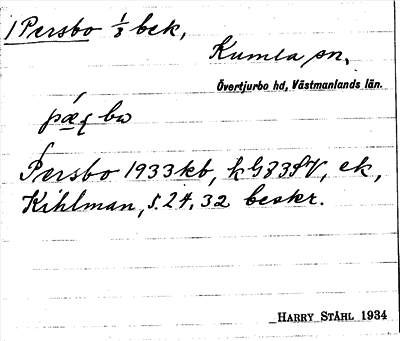 1 Persbo 1/3 bek,
Kumla sn,
Övertjurbo hd, Västmanlands län.
Persbo 1933 kb,
Kihlman, s. 24, 32 beskr.
HARRY STÅHL 1934